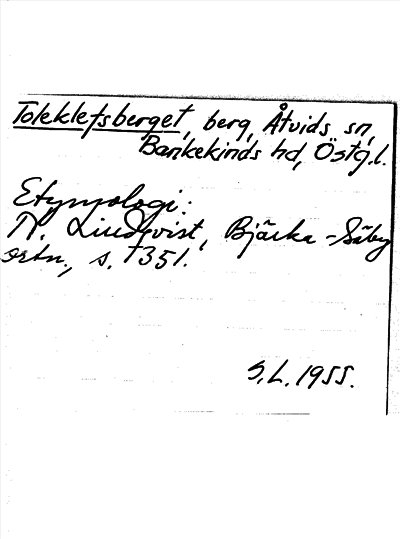 Toleklefsberget, berg, Åtvids sn,
Bankekinds hd, Östg.l.
Etymologi:
N. Lindqvist, Bjärka-Säby
ortn., s. 351.
S.L. 1955.